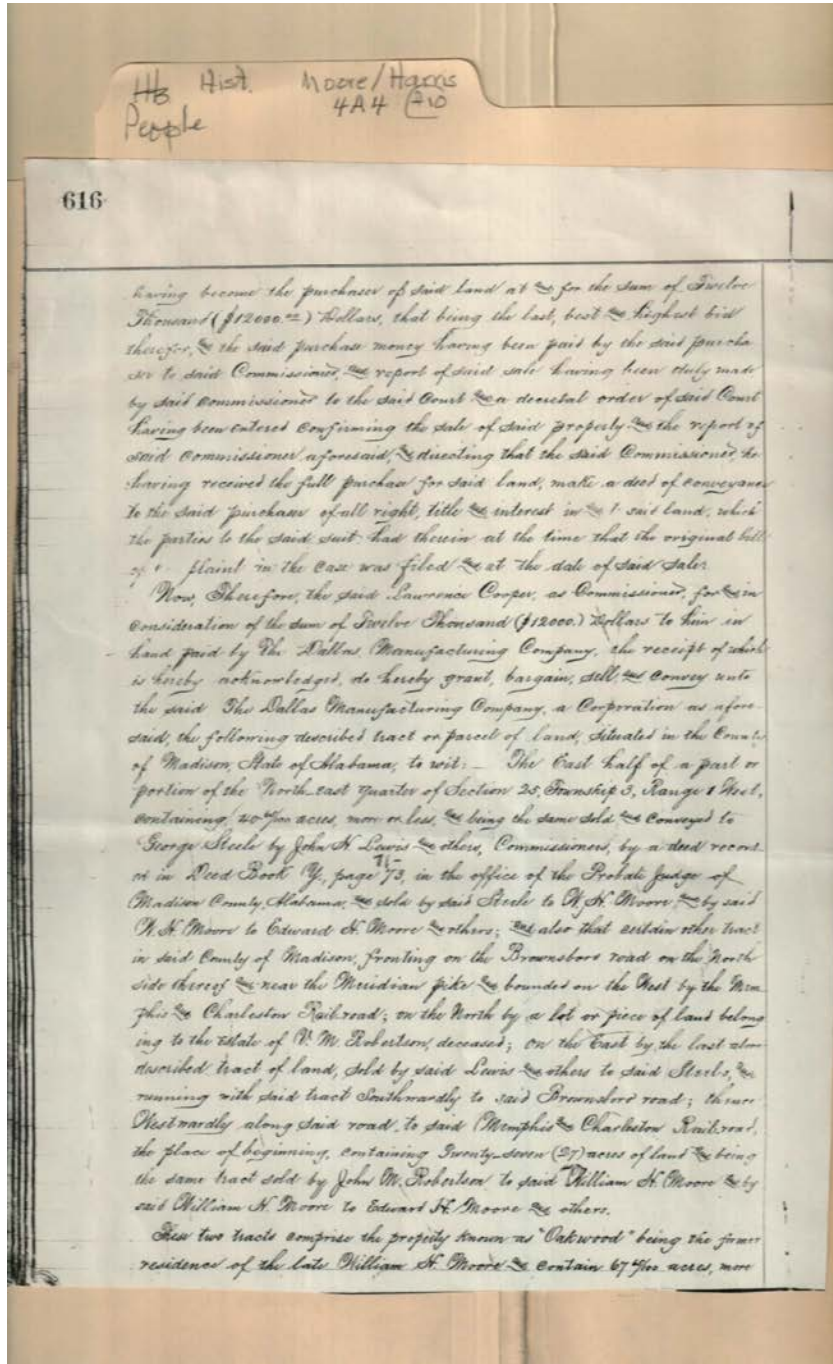 HB Hist. Moore/Harris
4A4
People
616
having become the purchaser of said land at & for the sum of Twelve
Thousand ($12000.00) Dollars, that being the last, best & highest bid
therefor, & the said purchase money having been paid by the said purcha
ser to said Commissioner, & report of said sale having been duly made
by said Commissioner to the said Court & a decretal order of said Court
having been entered confirming the sale of said property & the report of
said Commissioner aforesaid, & directing that the said Commissioner, he
having received the full purchase for said land, make a deed of conveyance
to the said purchaser of all right, title & interest in & t said land, which
the parties to the said suit had therein at the time that the original bill
of plaint in the case was filed & at the date of said sale:
Now, Therefore, the said Lawrence Cooper, as Commissioner, for & in
consideration of the sum of Twelve Thousand ($12000.) Dollars to him in
hand paid by The Dallas Manufacturing Company, the receipt of which
is hereby acknowledged, do hereby grant, bargain, sell, & convey unto
the said The Dallas Manufacturing Company, a Corporation as afore
said, the following described tract or parcel of land, situated in the County
of Madison, State of Alabama, to wit:— The East half of a part or
portion of the North-east quarter of Section 25, Township 3, Range 1 West,
containing acres, more or less, & being the same sold & conveyed to
George Steele by John N Lewis & others, Commissioners, by a deed record
ed in Deed Book Y, page 73, in the office of the Probate Judge of
Madison County, Alabama, & sold by said Steele to W. H. Moore & by said
W. H. Moore to Edward H. Moore & others; & also that certain other tract
in said County of Madison, fronting on the Brownsboro road on the North
side thereof & near the Meridian pike & bounded on the West by the Mem
phis & Charleston Railroad; on the North by a lot or piece of land belong
ing to the Estate of V. M. Robertson, deceased; on the East by the last abov
described tract of land, sold by said Lewis & others to said Steele, &
running with said tract Southwardly to said Brownsboro road; thence
Westwardly along said road, to said Memphis & Charleston Railroad,
the place of beginning, containing Twenty-seven (27) acres of land & being
the same tract sold by John M. Robertson to said William H. Moore & by
said William H. Moore to Edward H. Moore & others.
These two tracts comprise the property known as "Oakwood" being the former
residence of the late William H. Moore & contain acres, more